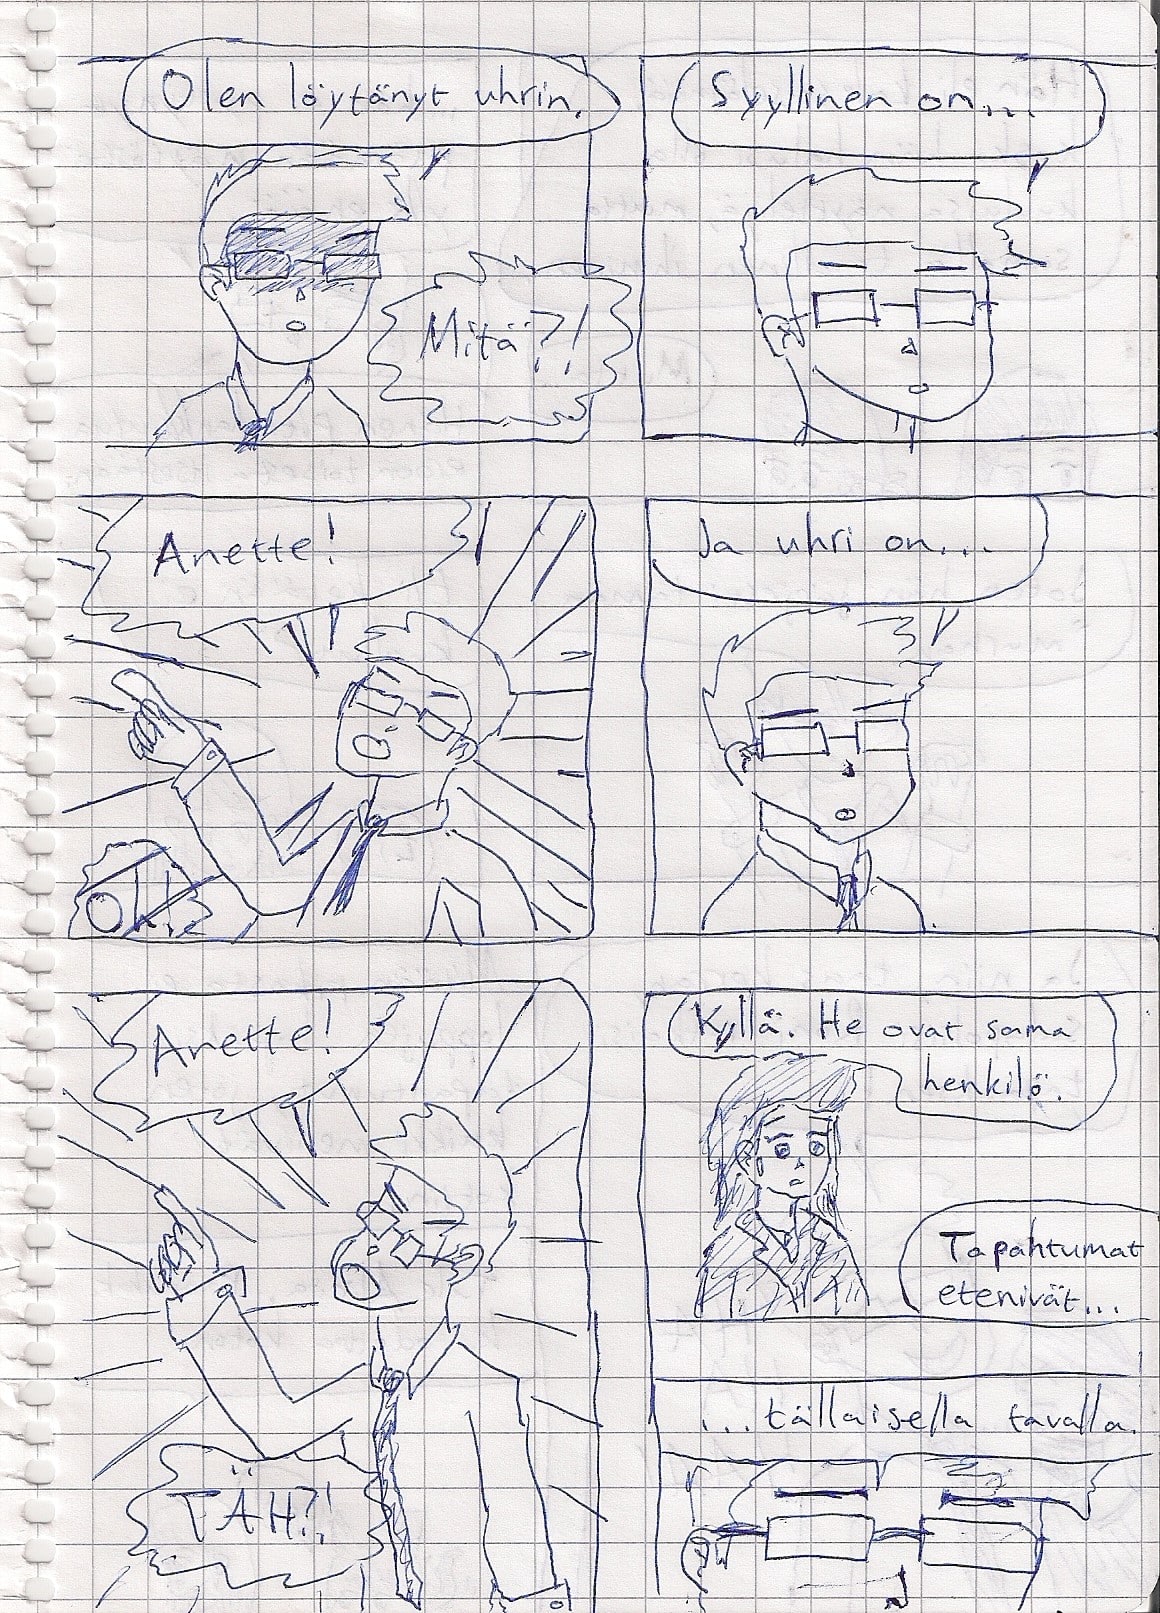 Olen löytänyt uhrin.
Mitä?!
Syyllinen on...
Anette!
Ja uhri on...
Anette!
TÄH?!
Kyllä. He ovat sama
henkilö.
Tapahtumat
etenivät...
...tällaisella tavalla.